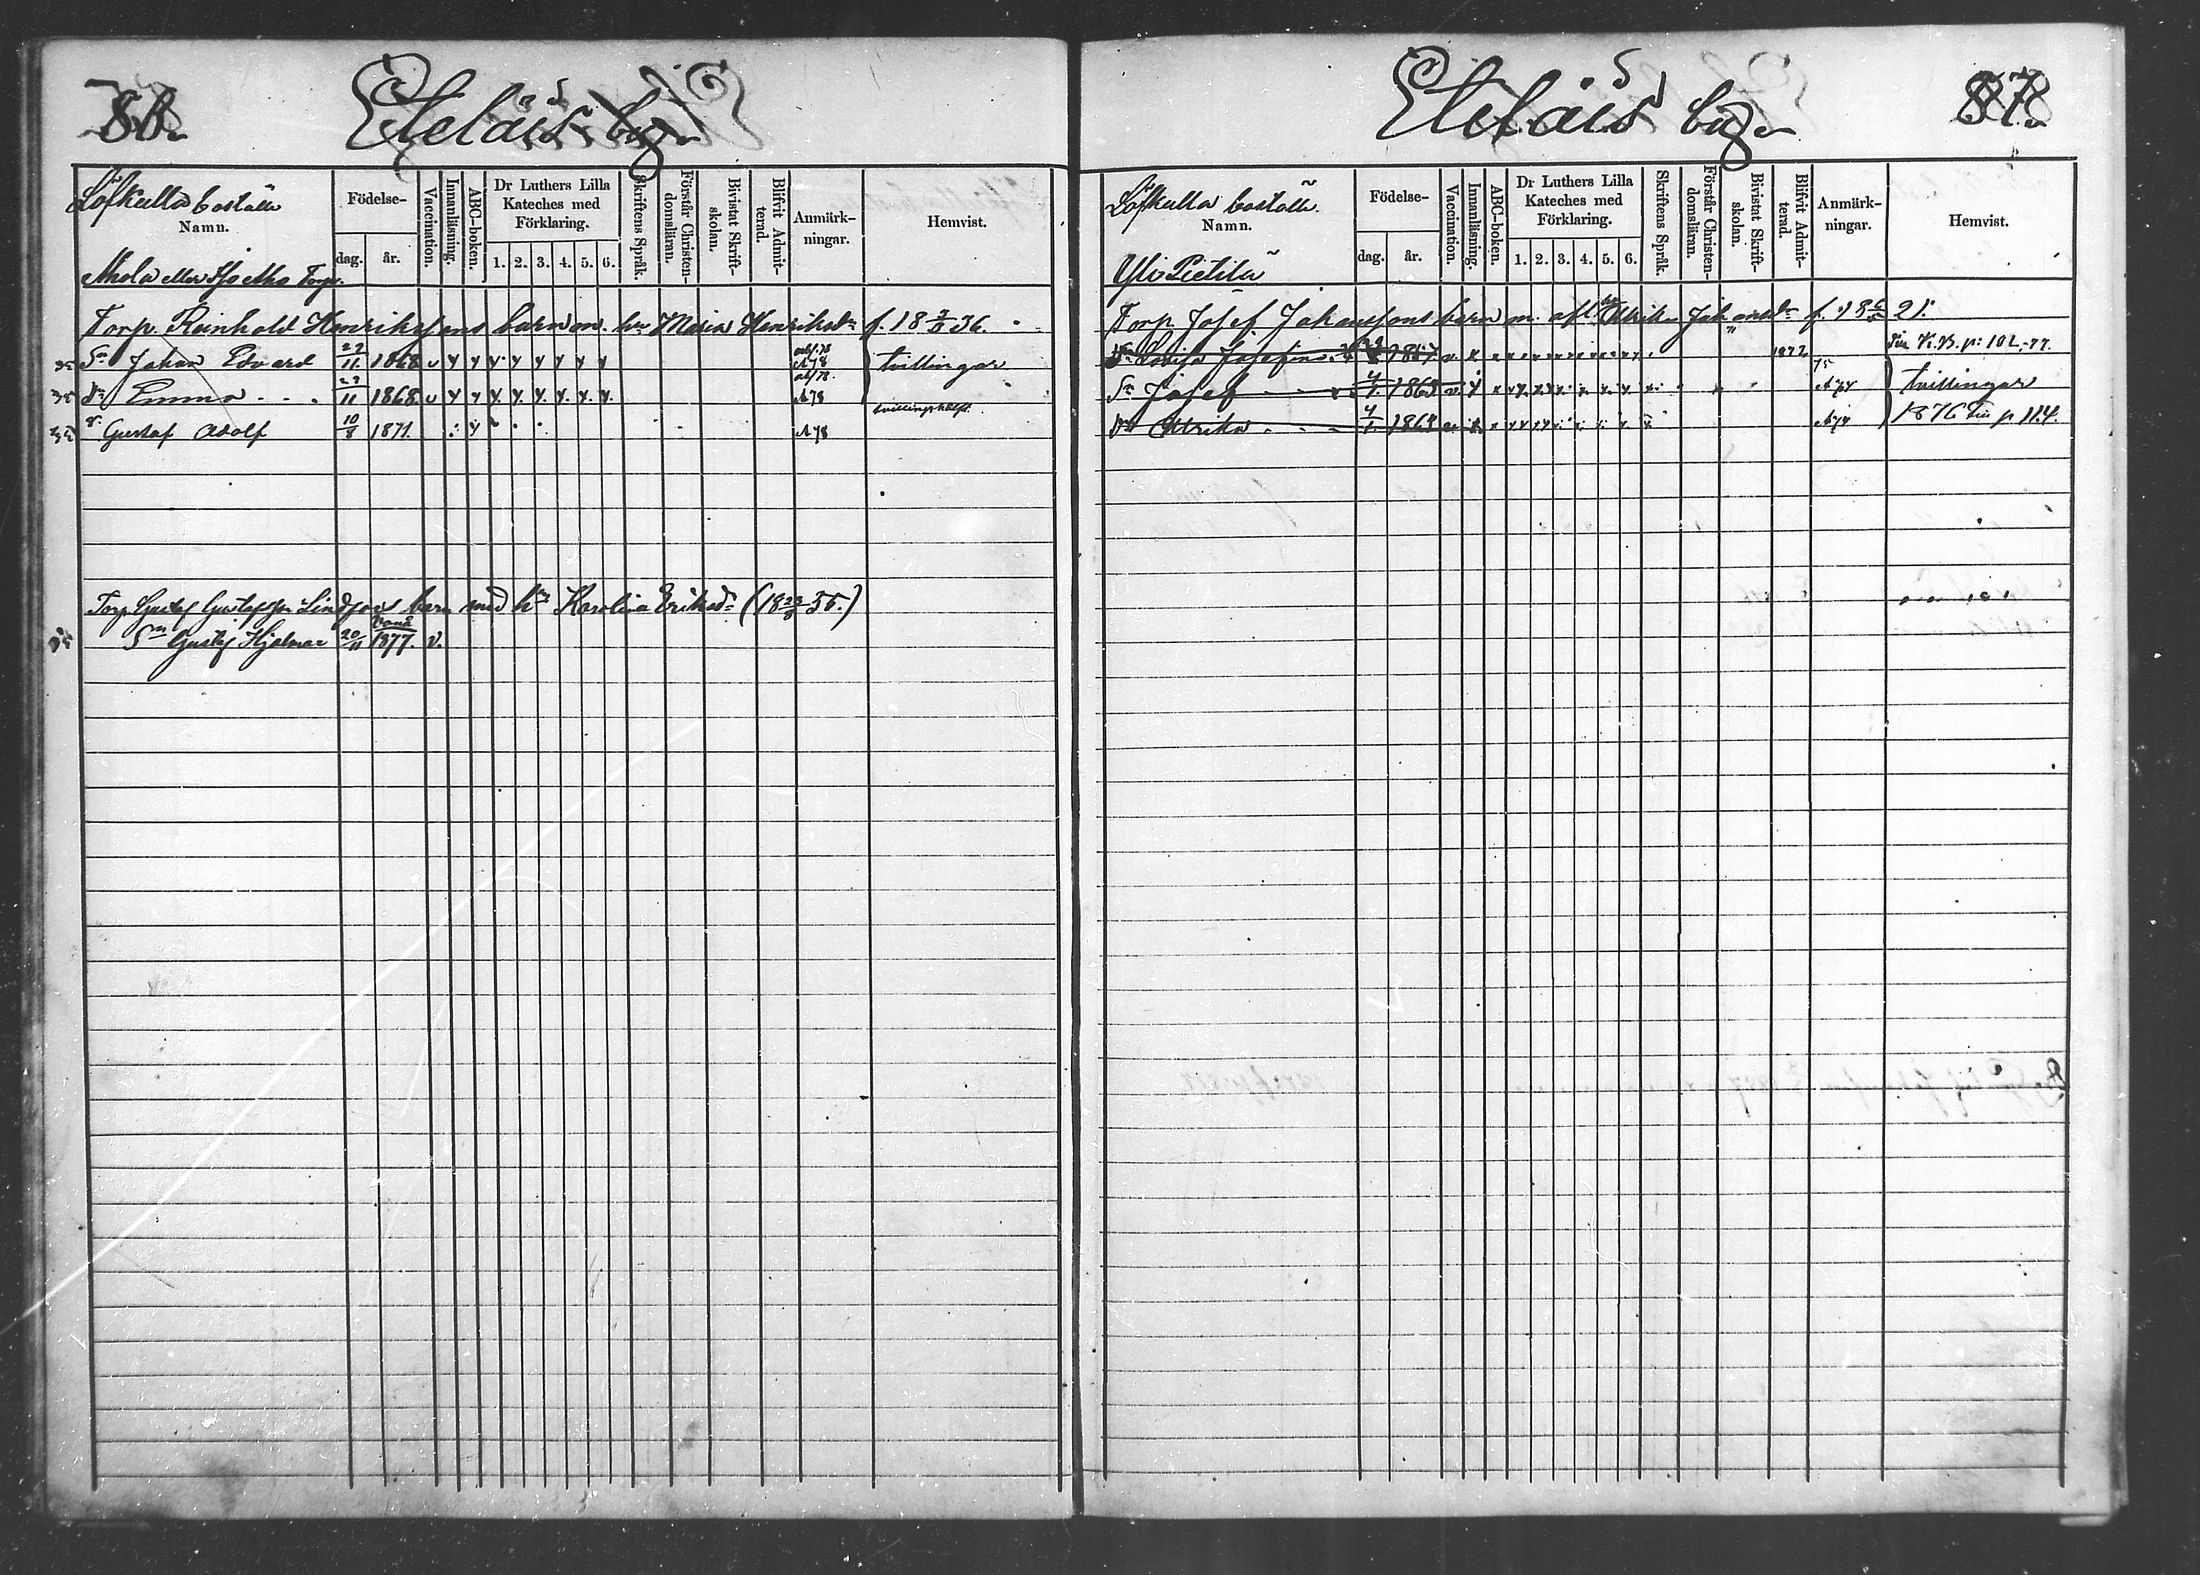 86.
Eteläis by
Löfkulla boställe
Namn.
Födelse-
dag. år.
Vaccination.
Innanläsning.
ABC-boken.
Dr Luthers Lilla Kateches med Förklaring.
1. 2. 3. 4. 5. 6.
Skriftens Språk.
Förstår Christendomsläran.
Bivistat Skriftskolan.
Blifvit Admitterad.
Anmärkningar.
Hemvist.
Ahola eller Torp.
Torp. Reinhold Henrikssons barn m. hu Maria Henriksdr f. 18 36.
Sn Johan Edvard 27/11 1868 v y y y y y y y y A78 tvillingar
Dr Emma 27/11 1868 v y y y. y. y y. y. y. A78
Sn Gustaf Adolf 10/8 1871. A78
Torp. Gustaf Gustafsson Lindfors barn med hu Karolina Eriksdr (18 35.)
Sn Gustaf Hjalmar 20/11 1877. v.
87.
Eteläis by
Löfkulla boställe.
Namn.
Födelse-
dag. år.
Vaccination.
Innanläsning.
ABC-boken.
Dr Luthers Lilla Kateches med Förklaring.
1. 2. 3. 4. 5. 6.
Skriftens Språk.
Förstår Christendomsläran.
Bivistat Skriftskolan.
Blifvit Admitterad.
Anmärkningar.
Hemvist.
Yli Pietilä
Torp. Josef Johanssons barn m. afl. hu Ulrika Johansdr f. 18 21.
Dr Lovisa Josefina 1857. 1877 p: 102,-77.
Sn Josef 4/1. 1863 75 A74 tvillingar
Dr Ulrika 4/1. 1863 A74 1876 p 114.